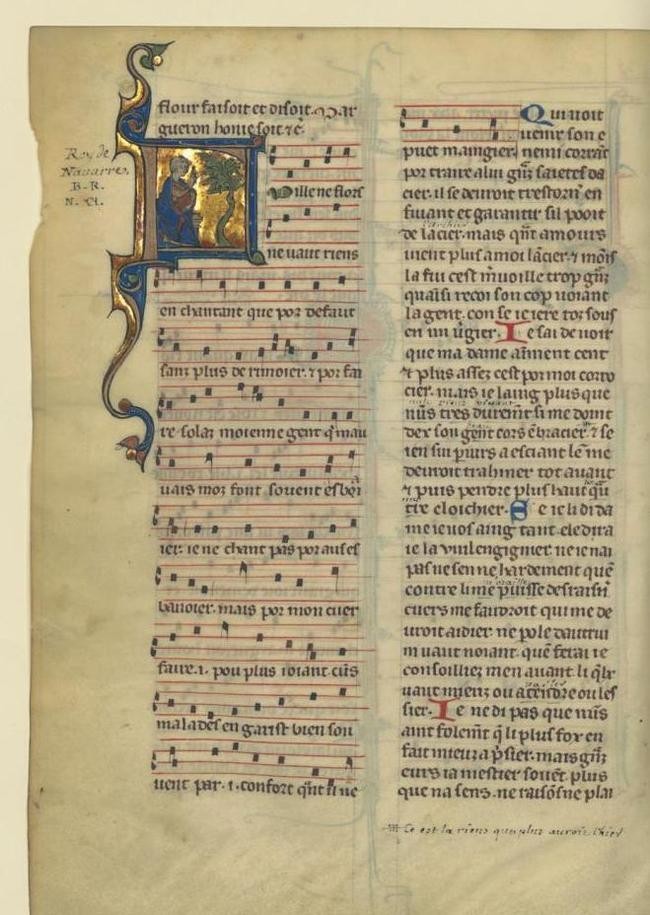 Roy de
Navarre.
B. R.
N. VI.
flour faisoit et disoit. Par
gueron honie soit ⁊c.
Fuille ne flors
ne vaut riens
en chantant que por defaut
sanz plus de rimoier. ⁊ por fai
re solaz moienne gent q̃ mau
uais moz font souent
ier. ie ne chant pas por aus es
banoier. mais por mon cuer
faire .i. pou plus ioiant c̃us
malades en garist bien sou
uent par .i. confort
Qui uoit
uenir son e
nemi corrãt
puet maingier
por traire a lui gñz saietes da
cier. il se deuroit trestorñ en
fuiant et garantir sil pooit
de lacier. mais qñt amours
uient plus a moi lãcier. ⁊ mõis
la fui cest m̃uoille trop gñz
quaisi recoi son cop uoiant
la gent. con se ie iere toz sous
en un ũgier. Ie sai de uoir
que ma dame aiment cent
⁊ plus assez cest por moi corro
cier. mais ie laing plus que
nũs tres durem̃t si me doint
dex son gent cors ẽbracier. ⁊ se
ien sui
deuroit trahiner tot auant
⁊ puis pendre plus haut
tre cloichier. Se ie li di da
me ie uos aing tant. ele dira
ie la vuil engignier. ne ie nai
pas ne sen ne hardement quẽ
contre li me puisse desraisñ
cuers me faudroit qui me de
uroit aidier. ne pole dautrui
m uaut noiant. quẽ ferai ie
consoilliez men auant. li q̃lr
uaut mieuz ou atẽdre ou les
sier. Ie ne di pas que nũs
aint folem̃t q̃ li plus fox en
fait mieuz a p̃sier. mais gñz
eurs ia mestier souẽt. plus
que na sens. ne raisõs ne plai
Ce est la riens que plus auroie chier